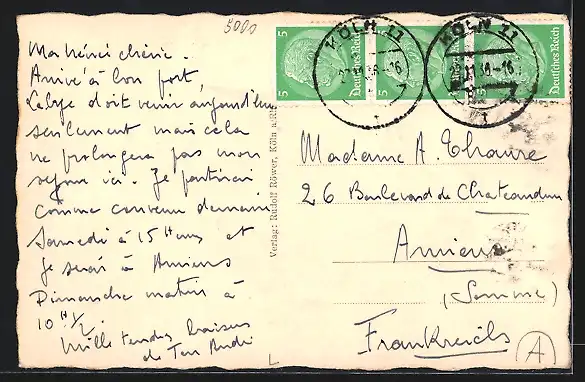 5000
Ma Néné chérie.
Arrivé à bon port,
Labye doit venir aujourd'hui
seulement mais cela
ne prolongera pas mon
séjour ici. Je partirai
comme convenu demain
Samedi à 15 Heures et
je serai à Amiens
Dimanche matin à
10 H 1/2.
Mille tendres baisers
de Ton André
Verlag: Rudolf Röwer, Köln a. Rh.
5 Deutsches Reich
5 Deutsches Reich
5 Deutsches Reich
KÖLN 11
KÖLN 11
Madame A. Thauvre
26 Boulevard de Chateaudun
Amiens
(Somme)
Frankreich
A